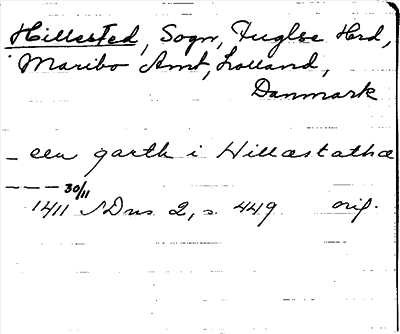 Hillested, Sogn, Fuglse Hrd,
Maribo Amt, Lolland,
Danmark
— een garth i Hillæstathæ
— — — 30/11
1411 NDns 2, s. 449 orig.